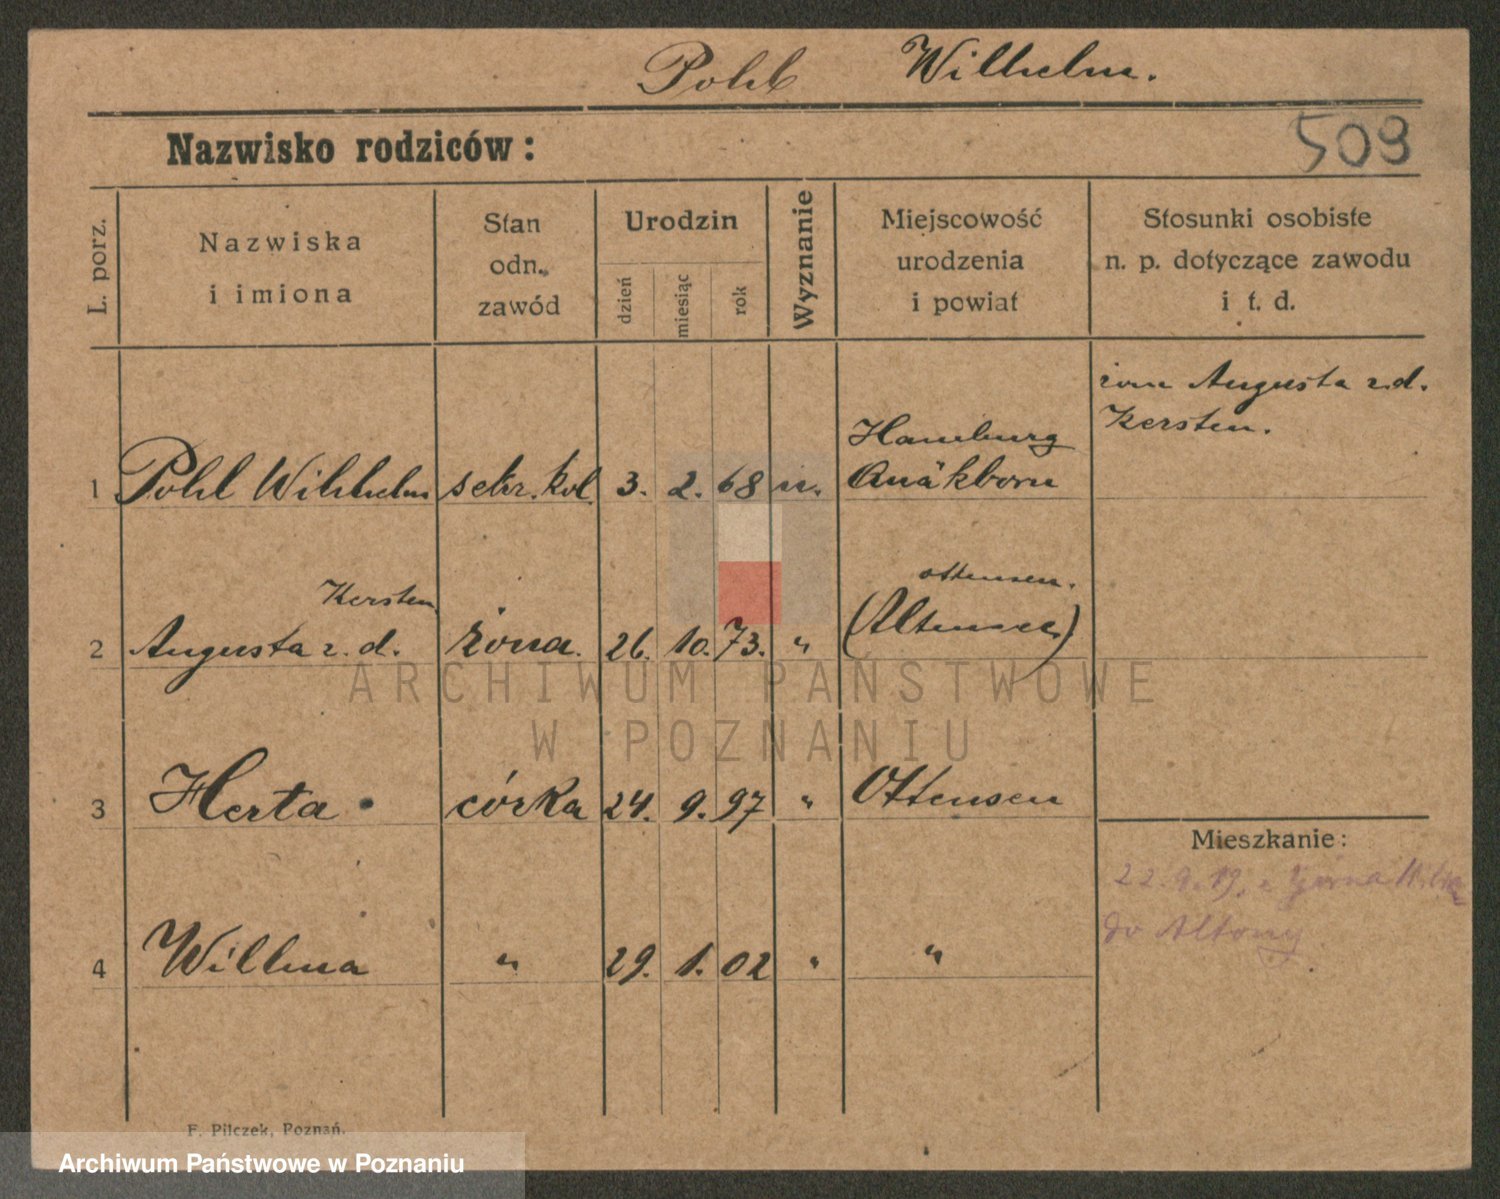 Pohl Wilhelm.
Nazwisko rodziców:
509
L. porz.
Nazwiska
i imiona
Stan
odn.
zawód
Urodzin
dzień
miesiąc
rok
Wyznanie
Miejscowość
urodzenia
i powiat
Stosunki osobiste
n. p. dotyczące zawodu
i t. d.
żona Augusta z.d.
Kersten.
Hamburg
1 Pohl Wilhelm sekr. kol. 3. 2. 68
Kersten
ottensen.
2 Augusta z. d. żona. 26. 10. 73. " (Altensee)
3 Herta córka 24. 9. 97 " Ottensen
Mieszkanie:
22.9.19. z Górna Wilda
do Altony
4 Willma " 29. 1. 02 " "
F. Pilczek, Poznań.
ARCHIWUM PAŃSTWOWE
W POZNANIU
Archiwum Państwowe w Poznaniu